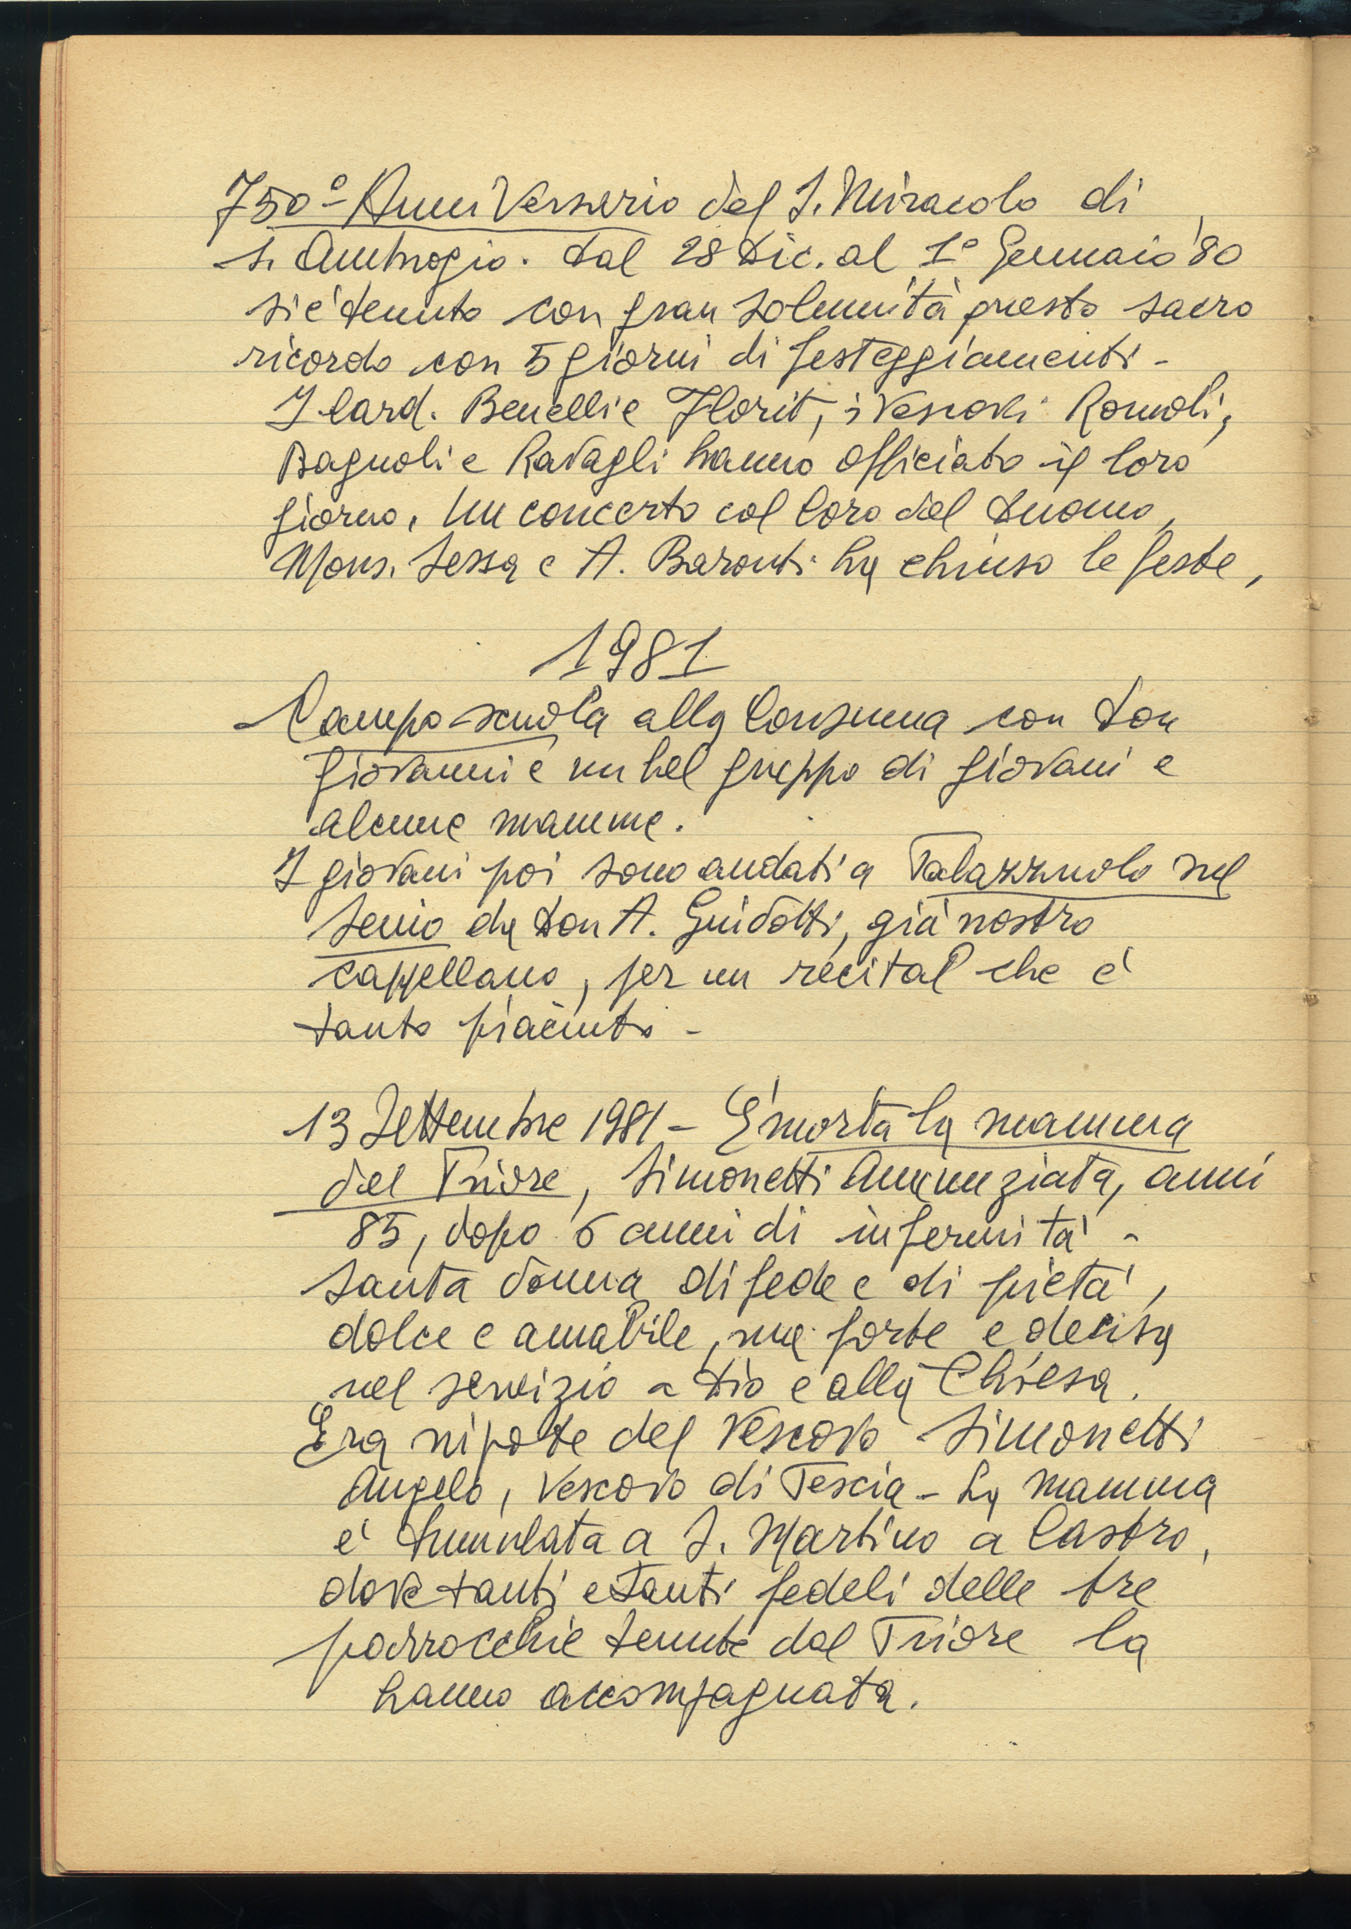 750º Anniversario del S. Miracolo di
S. Ambrogio. Dal 28 Dic. al 1º Gennaio '80
si é tenuto con gran solennità questo sacro
ricordo con 5 giorni di festeggiamenti -
I Card. Benelli e Florit, i Vescovi Romoli,
Bagnoli e Ravagli hanno officiato il loro
giorno. Un concerto col Coro del Duomo,
Mons. Sessa e A. Baronti ha chiuso le feste,
1981
Campo scuola alla Consuma con Don
Giovanni e un bel gruppo di giovani e
alcune mamme.
I giovani poi sono andati a Palazzuolo sul
Senio da Don A. Guidotti, già nostro
cappellano, per un recital che é
tanto piaciuto -
13 Settembre 1981 - É morta la mamma
del Priore, Simonetti Annunziata, anni
85, dopo 6 anni di infermità -
Santa donna di fede e di pietà,
dolce e amabile, ma forte e decisa
nel servizio a Dio e alla Chiesa.
Era nipote del Vescovo Simonetti
Angelo, Vescovo di Pescia - La mamma
é tumulata a S. Martino a Castro,
dove tanti e tanti fedeli delle tre
parrocchie tenute dal Priore la
hanno accompagnata.